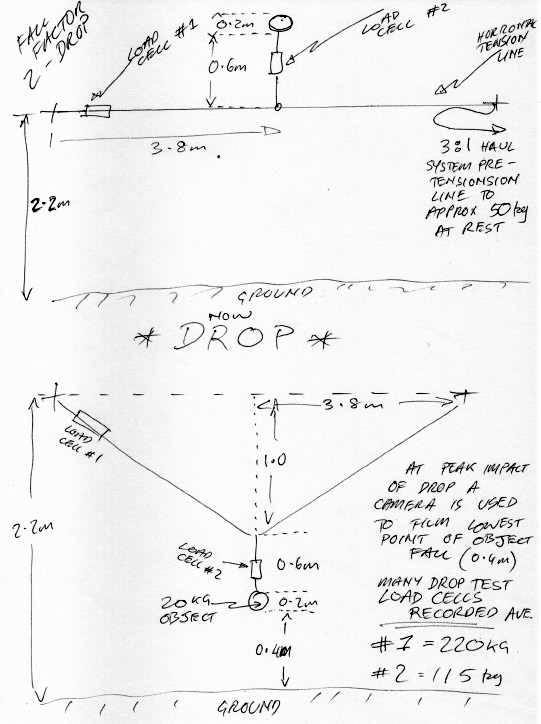 FALL
FACTOR
2 - DROP
LOAD
CELL #1
0.2m
0.6m
LOAD
CELL #2
HORIZONTAL
TENSION
LINE
3.8m
2.2m
3:1 HAUL
SYSTEM PRE-
TENSIONSION
LINE TO
APPROX 50kg
AT REST
GROUND
NOW
* DROP *
3.8m
LOAD
CELL #1
1.0
2.2m
LOAD
CELL #2
0.6m
20KG
OBJECT
0.2m
0.4m
GROUND
AT PEAK IMPACT
OF DROP A
CAMERA IS USED
TO FILM LOWEST
POINT OF OBJECT
FALL (0.4m)
MANY DROP TEST
LOAD CELLS
RECORDED AVE.
#1 = 220KG
#2 = 115kg